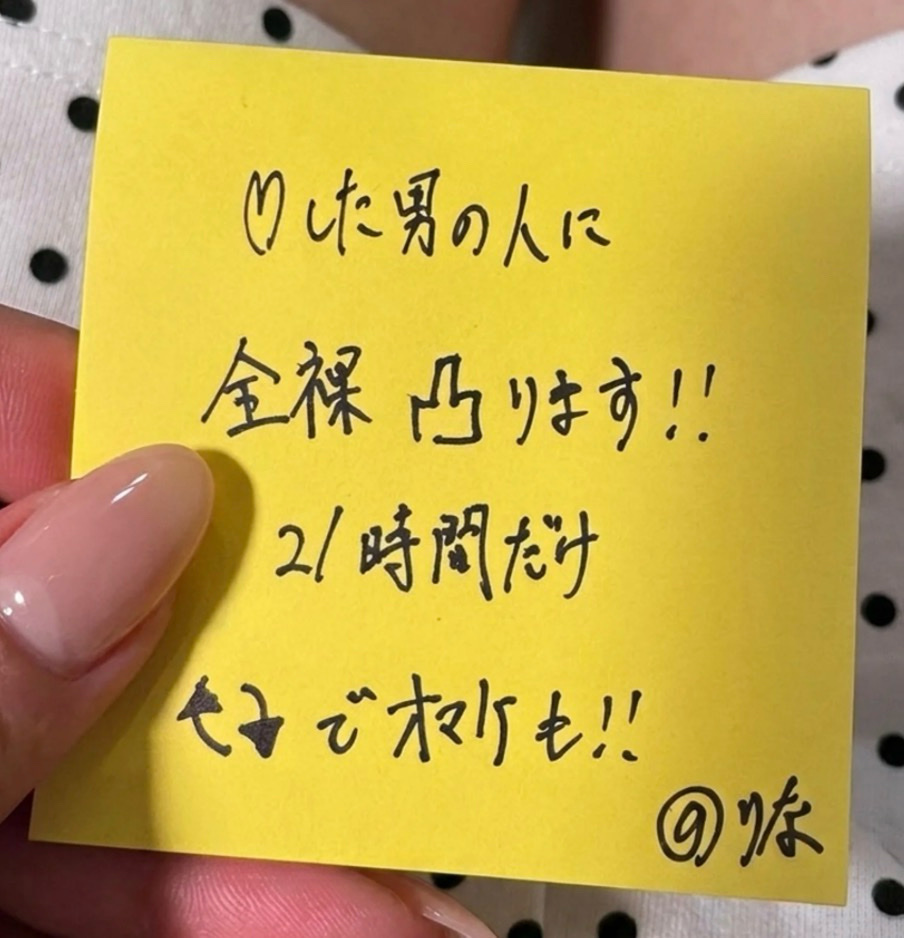 ♡した男の人に
全裸 凸ります!!
21時間だけ
でオマケも!!
りな